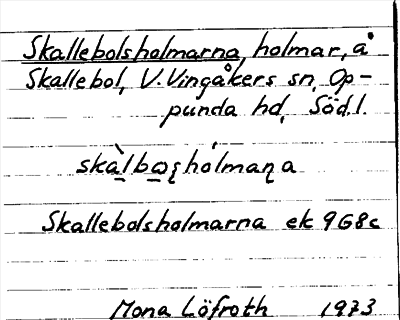 Skallebolsholmarna, holmar, å
Skallebol, V. Vingåkers sn, Op-
punda hd, Söd.l.
skàlbωʂhólmaɳa
Skallebolsholmarna ek 9G8c
Mona Löfroth 1973